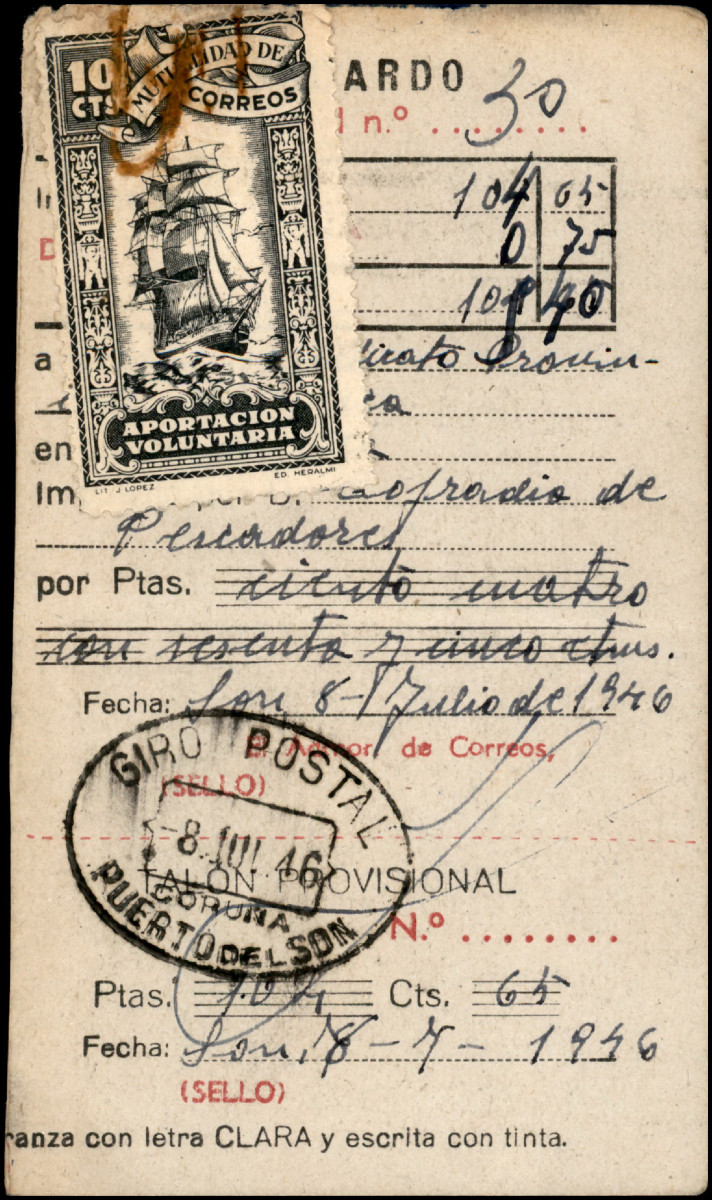 10
CTS
MUTUALIDAD DE
CORREOS
APORTACION
VOLUNTARIA
LIT. J. LOPEZ
ED. HERALMI
ARDO
n.º ........ 30
104 65
0 75
40
a Provin-
en
Im
Cofradia de
Pescadores
por Ptas. ciento cuatro
con sesenta y cinco ctms.
Fecha: Son 8-Julio de 1946
de Correos,
(SELLO)
GIRO POSTAL
-8.JUL.46
CORUÑA
PUERTO DEL SON
TALON PROVISIONAL
N.º ........
Ptas. 104 Cts. 65
Fecha: Son, 8-7-1946
(SELLO)
ranza con letra CLARA y escrita con tinta.